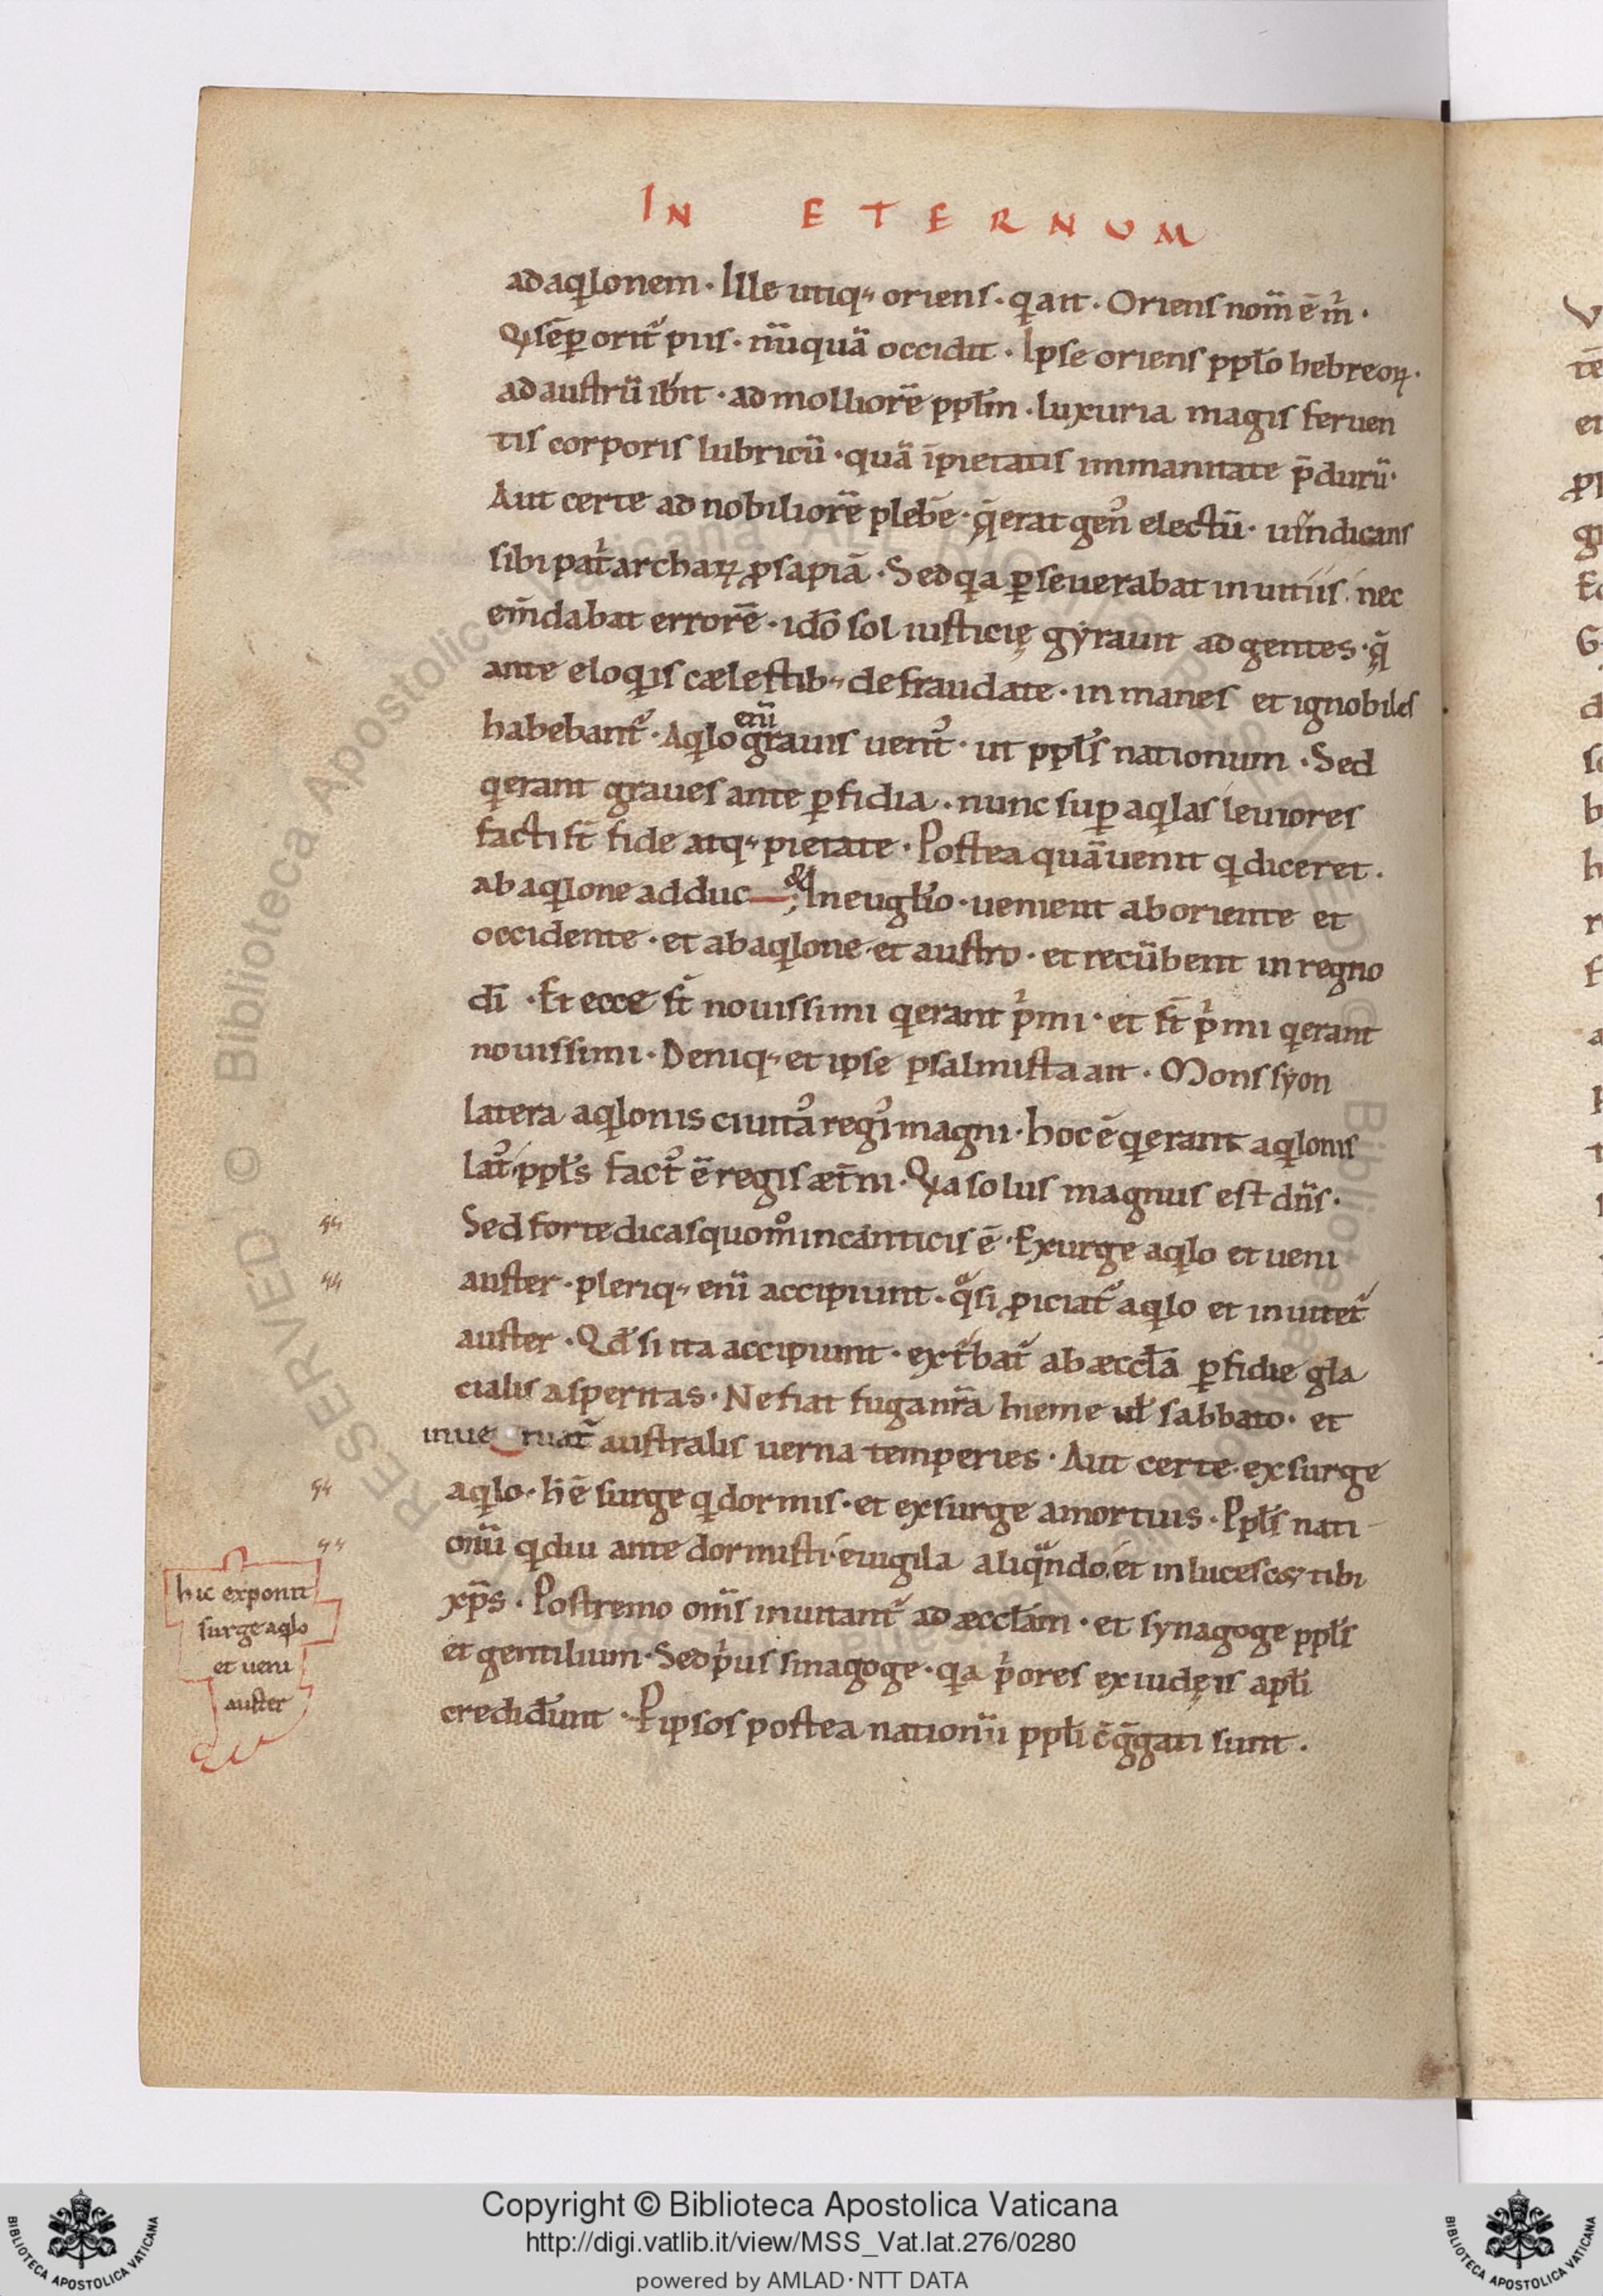 IN ETERNUM
ad aqͥlonem · Ille utiq;, oriens · qͥ ait · Oriens nom̄ ē m̅ ·
Qͥ sēp orit᷑ piis · nūquā occidit · Ipse oriens pplo̅ hebreoꝝ ·
ad austrū ibit · ad molliorē ppl̅m · luxuria magis feruen
tis corporis lubricū · quā īpietatis immanitate p̄durū ·
Aut certe ad nobiliorē plebē · q̄ erat gen᷒ electū · uindicans
sibi patͥarchaꝝ ꝓsapiā · Sed qͥa ꝑseuerabat in uitiis · nec
em̄dabat errorē · idō sol iusticię gyrauit ad gentes · q̄
ante eloqͥis cælestib; defraudate · inmanes et ignobiles
habebant᷑ · Aqͥlo enī grauis uent᷒ · ut ppl̅s nationum · Sed
qͥ erant graues ante ꝑfidia · nunc suꝑ aqͥlas leuiores
facti st̄ fide atq; pietate · Postea quā uenit qͥ diceret ·
ab aqͥlone adduc & In euglͥo · uenient ab oriente et
occidente · et ab aqͥlone et austro · et recūbent in regno
dī · Et ecce st̄ nouissimi qͥ erant pͥmi · et st̄ pͥmi qͥ erant
nouissimi · Deniq; et ipse psalmista ait · Mons syon
latera aqͥlonis ciuita᷒ regi᷒ magni · hoc ē qͥ erant aqͥlonis
lat᷒ ppl̅s fact᷒ ē regis æt̄ni · Qͥa solus magnus est dn̄s ·
Sed forte dicas quom̊ in canticis ē · Exurge aqͥlo et ueni
auster · pleriq; enī accipiunt · qͣsi ꝓiciat᷑ aqͥlo et inuitet᷑
auster · Qd̄ si ita accipiunt · ext̄bat᷑ ab æccl̅a ꝑfidie gla
cialis asperitas · Ne fiat fuga nr̄a hieme ul̅ sabbato · et
inue rnat᷑ australis uerna temperies · Aut certe exsurge
aqͥlo · h̄ ē surge qͥ dormis · et exsurge a mortuis · Ppl̅s nati
onū qͥ diu ante dormisti · euigila aliqͣndo · et inlucesc& tibi
xp̄s · Postremo om̄s inuitant᷑ ad æccl̅am · et synagoge ppl̅s
et gentilium · Sed pͥus sinagoge · qͥa pͥores ex iudęis apl̅i
credid̄unt · Ꝑ ipsos postea nationū ppl̅i c̄g̅gati sunt ·
hic exponit
surge aqͥlo
et ueni
auster
Copyright © Biblioteca Apostolica Vaticana
http://digi.vatlib.it/view/MSS_Vat.lat.276/0280
powered by AMLAD·NTT DATA
BIBLIOTECA APOSTOLICA VATICANA
BIBLIOTECA APOSTOLICA VATICANA